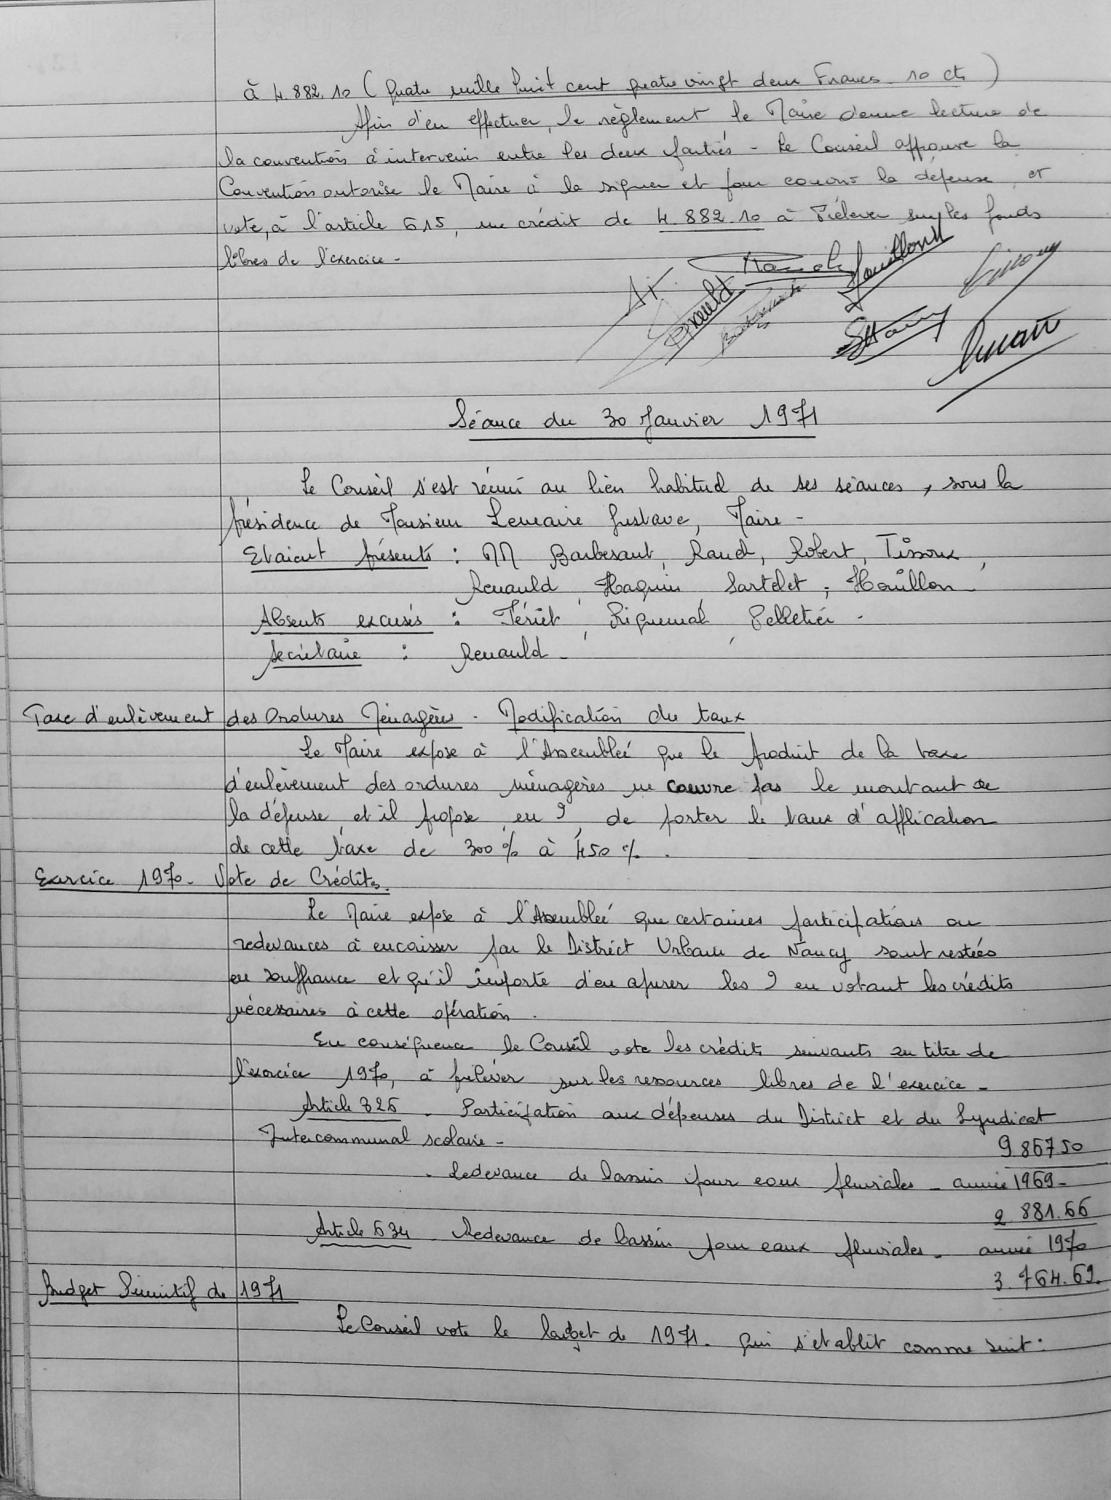 à 4.882.10 (quatre mille huit cent quatre vingt deux Francs - 10 cts)
Afin d'en effectuer, le règlement le Maire donne lecture de
la convention à intervenir entre les deux parties - Le Conseil approuve la
Convention autorise le Maire à la signer et pour couvrir la dépense et
vote, à l'article 615, un crédit de 4.882.10 à Prélever sur les fonds
libres de l'exercice -
Séance du 30 Janvier 1971
Le Conseil s'est réuni au lieu habituel de ses séances, sous la
présidence de Monsieur Lemaire Gustave, Maire -
Etaient présents : MM Barbesant, Rauch, Robert, Tissoux,
Renauld, Haquin, Sartelet, Houillon
Absents excusés : Fériet, Piquemal, Pelletier -
Secrétaire : Renauld -
Taxe d'enlèvement des Ordures Ménagères - Modification du taux
Le Maire expose à l'Assemblée que le produit de la taxe
d'enlèvement des ordures ménagères ne couvre pas le montant de
la dépense et il propose en , de porter le taux d'application
de cette taxe de 300 % à 450 % .
Exercice 1970 - Vote de Crédits.
Le Maire expose à l'Assemblée que certaines participations ou
redevances à encaisser par le District Urbain de Nancy sont restées
en souffrance et qu'il importe d'en apurer les en votant les crédits
nécessaires à cette opération .
En conséquence le Conseil vote les crédits suivants au titre de
l'exercice 1970, à prélever sur les ressources libres de l'exercice -
Article 826 - Participation aux dépenses du District et du Syndicat
Intercommunal scolaire - 9.867.50
- Redevance de bassin pour eaux pluviales - année 1969 -
2.881.66
Article 634 Redevance de bassin pour eaux pluviales - année 1970
3.764.69.
Budget Primitif de 1971
Le Conseil vote le budget de 1971 - qui s'établit comme suit :